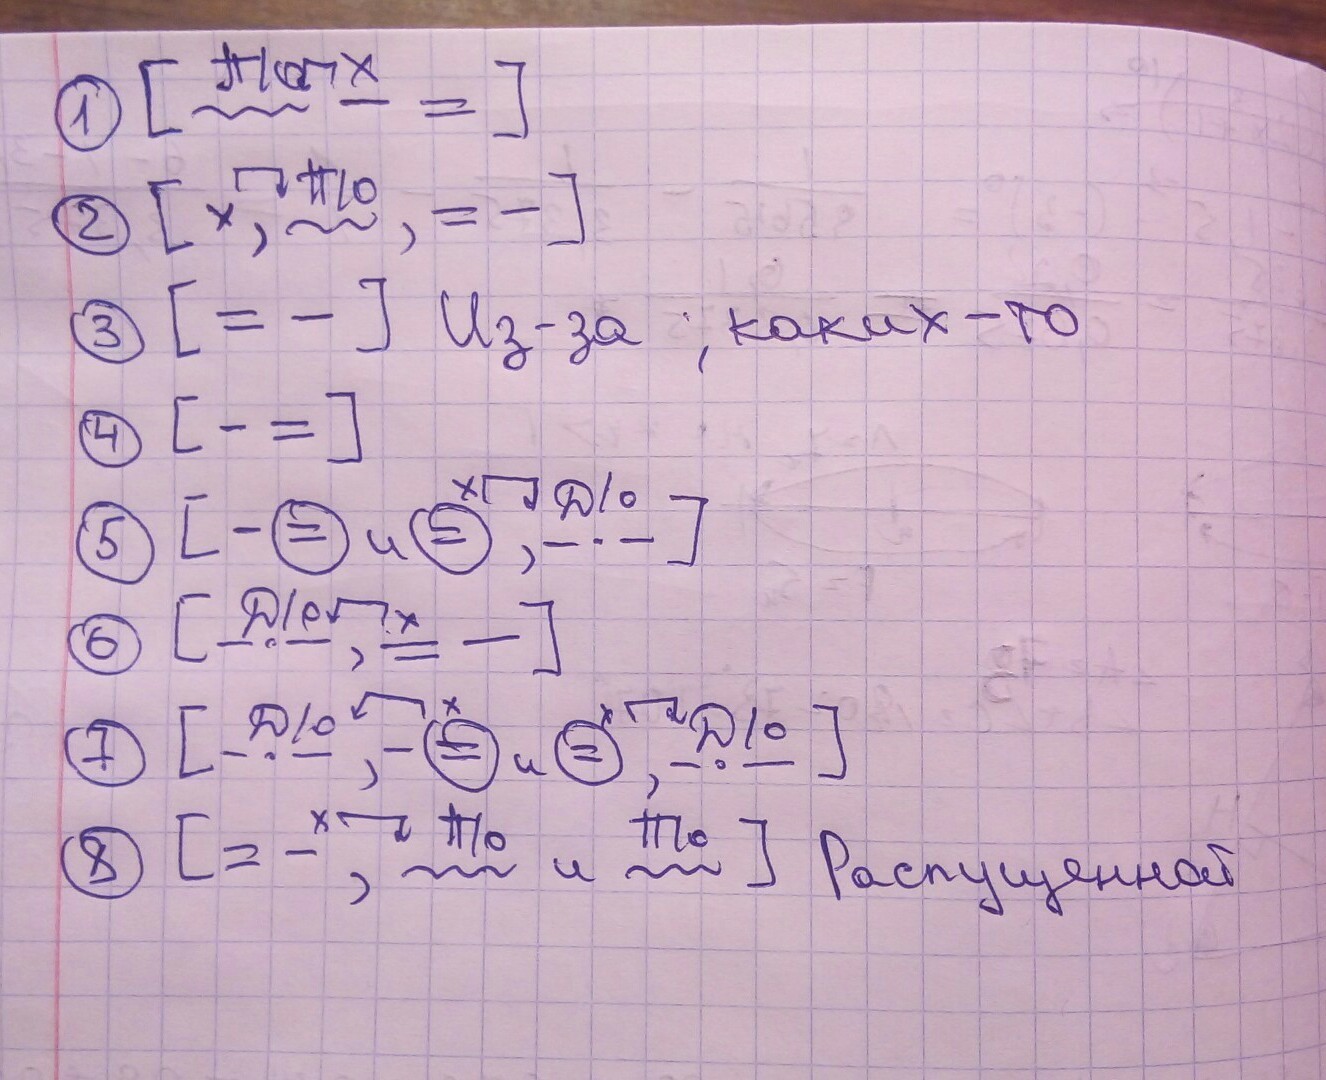 ① [ П/О х = ]
② [ х, П/О, = - ]
③ [ = - ] Из-за ; каких-то
④ [ - = ]
⑤ [ - = и = х, Д/О ]
⑥ [ Д/О, х = - ]
⑦ [ Д/О, - = х и = х, Д/О ]
⑧ [ = - х, П/О и П/О ] Распущенной